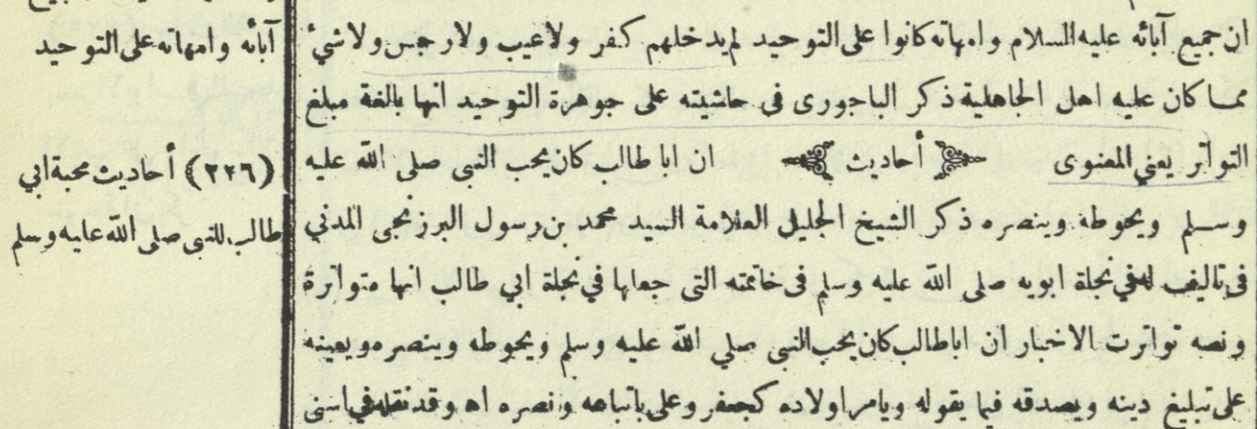 ان جميع آبائه عليه السلام وامهاته كانوا على التوحيد لم يدخلهم كفر ولا عيب ولا رجس ولا شيء
مما كان عليه اهل الجاهلية ذكر الباجورى فى حاشيته على جوهرة التوحيد انها بالغة مبلغ
التواتر يعني المعنوى ﴿ أحاديث ﴾ ان ابا طالب كان يحب النبى صلى الله عليه
وسلم ويحوطه وينصره ذكر الشيخ الجليل العلامة السيد محمد بن رسول البرزنجى المدني
فى تاليف له في نجاة ابويه صلى الله عليه وسلم فى خاتمته التى جعلها في نجاة ابي طالب انها متواترة
ونصه تواترت الاخبار ان ابا طالب كان يحب النبى صلي الله عليه وسلم ويحوطه وينصره ويعينه
على تبليغ دينه ويصدقه فيما يقوله ويامر اولاده كجعفر وعلى باتباعه ونصره اه وقد نقله في اسنى
آبائه وامهاته على التوحيد
(٢٢٦) أحاديث محبة ابي
طالب للنبى صلى الله عليه وسلم